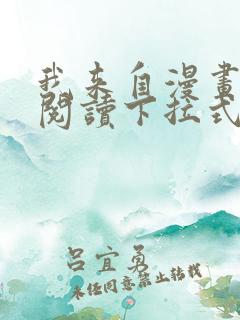 我来自漫畫
閱讀下拉式
吕宜勇
未经同意禁止转载